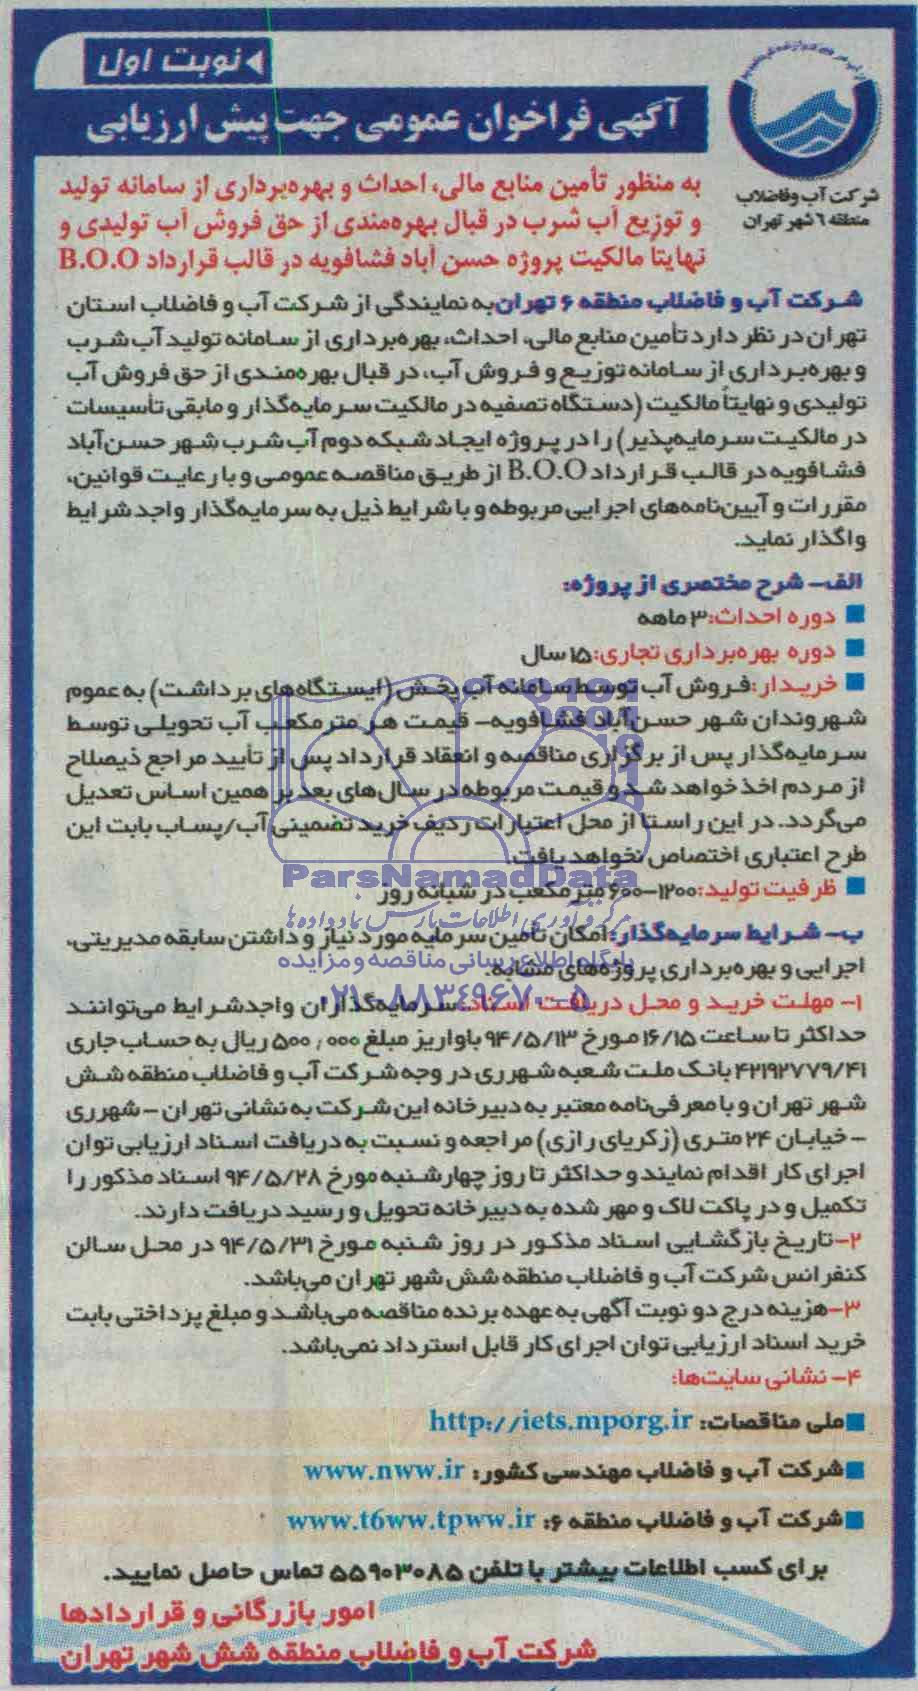 نوبت اول
آگهی فراخوان عمومی جهت پیش ارزیابی
شرکت آب و فاضلاب
منطقه ٦ شهر تهران
به منظور تأمین منابع مالی، احداث و بهره‌برداری از سامانه تولید
و توزیع آب شرب در قبال بهره‌مندی از حق فروش آب تولیدی و
نهایتا مالکیت پروژه حسن آباد فشافویه در قالب قرارداد B.O.O
شرکت آب و فاضلاب منطقه ۶ تهران به نمایندگی از شرکت آب و فاضلاب استان
تهران در نظر دارد تأمین منابع مالی، احداث، بهره‌برداری از سامانه تولید آب شرب
و بهره‌برداری از سامانه توزیع و فروش آب، در قبال بهره‌مندی از حق فروش آب
تولیدی و نهایتاً مالکیت (دستگاه تصفیه در مالکیت سرمایه‌گذار و مابقی تأسیسات
در مالکیت سرمایه‌پذیر) را در پروژه ایجاد شبکه دوم آب شرب شهر حسن‌آباد
فشافویه در قالب قرارداد B.O.O از طریق مناقصه عمومی و با رعایت قوانین،
مقررات و آیین‌نامه‌های اجرایی مربوطه و با شرایط ذیل به سرمایه‌گذار واجد شرایط
واگذار نماید.
الف- شرح مختصری از پروژه:
دوره احداث: ۳ ماهه
دوره بهره‌برداری تجاری: ۱۵ سال
خریدار: فروش آب توسط سامانه آب پخش (ایستگاه‌های برداشت) به عموم
شهروندان شهر حسن‌آباد فشافویه- قیمت هر متر مکعب آب تحویلی توسط
سرمایه‌گذار پس از برگزاری مناقصه و انعقاد قرارداد پس از تأیید مراجع ذیصلاح
از مردم اخذ خواهد شد و قیمت مربوطه در سال‌های بعد بر همین اساس تعدیل
می‌گردد. در این راستا از محل اعتبارات ردیف خرید تضمینی آب/پساب بابت این
طرح اعتباری اختصاص نخواهد یافت.
ParsNamadData
ظرفیت تولید: ۱۲۰۰-۶۰۰ متر مکعب در شبانه روز
مرکز فرآوری اطلاعات پارس نماد داده ها
ب- شرایط سرمایه‌گذار: امکان تأمین سرمایه مورد نیاز و داشتن سابقه مدیریتی،
پایگاه اطلاع رسانی مناقصه و مزایده
اجرایی و بهره‌برداری پروژه‌های مشابه.
۰۲۱-۸۸۳۴۹۶۷۰-۵
۱- مهلت خرید و محل دریافت اسناد: سرمایه‌گذاران واجد شرایط می‌توانند
حداکثر تا ساعت ۱۶/۱۵ مورخ ۹۴/۵/۱۳ با واریز مبلغ ۵۰۰,۰۰۰ ریال به حساب جاری
۴۲۱۹۲۷۷۹/۴۱ بانک ملت شعبه شهرری در وجه شرکت آب و فاضلاب منطقه شش
شهر تهران و با معرفی‌نامه معتبر به دبیرخانه این شرکت به نشانی تهران - شهرری
- خیابان ۲۴ متری (زکریای رازی) مراجعه و نسبت به دریافت اسناد ارزیابی توان
اجرای کار اقدام نمایند و حداکثر تا روز چهارشنبه مورخ ۹۴/۵/۲۸ اسناد مذکور را
تکمیل و در پاکت لاک و مهر شده به دبیرخانه تحویل و رسید دریافت دارند.
۲- تاریخ بازگشایی اسناد مذکور در روز شنبه مورخ ۹۴/۵/۳۱ در محل سالن
کنفرانس شرکت آب و فاضلاب منطقه شش شهر تهران می‌باشد.
۳- هزینه درج دو نوبت آگهی به عهده برنده مناقصه می‌باشد و مبلغ پرداختی بابت
خرید اسناد ارزیابی توان اجرای کار قابل استرداد نمی‌باشد.
۴- نشانی سایت‌ها:
ملی مناقصات: http://iets.mporg.ir
شرکت آب و فاضلاب مهندسی کشور: www.nww.ir
شرکت آب و فاضلاب منطقه ۶: www.t6ww.tpww.ir
برای کسب اطلاعات بیشتر با تلفن ۵۵۹۰۳۰۸۵ تماس حاصل نمایید.
امور بازرگانی و قراردادها
شرکت آب و فاضلاب منطقه شش شهر تهران